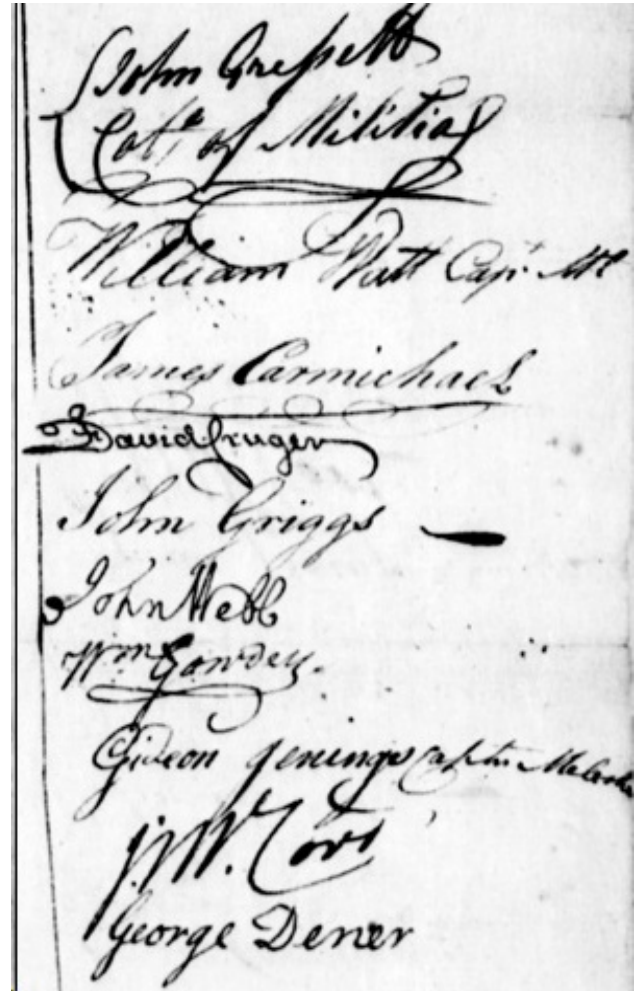 John Gressett
of Militia
William Watt Capt. Ml
James Carmichael
David Cruger
John Griggs
John Webb
Wm Gowdey.
Gideon Jenings Captn
George Dener